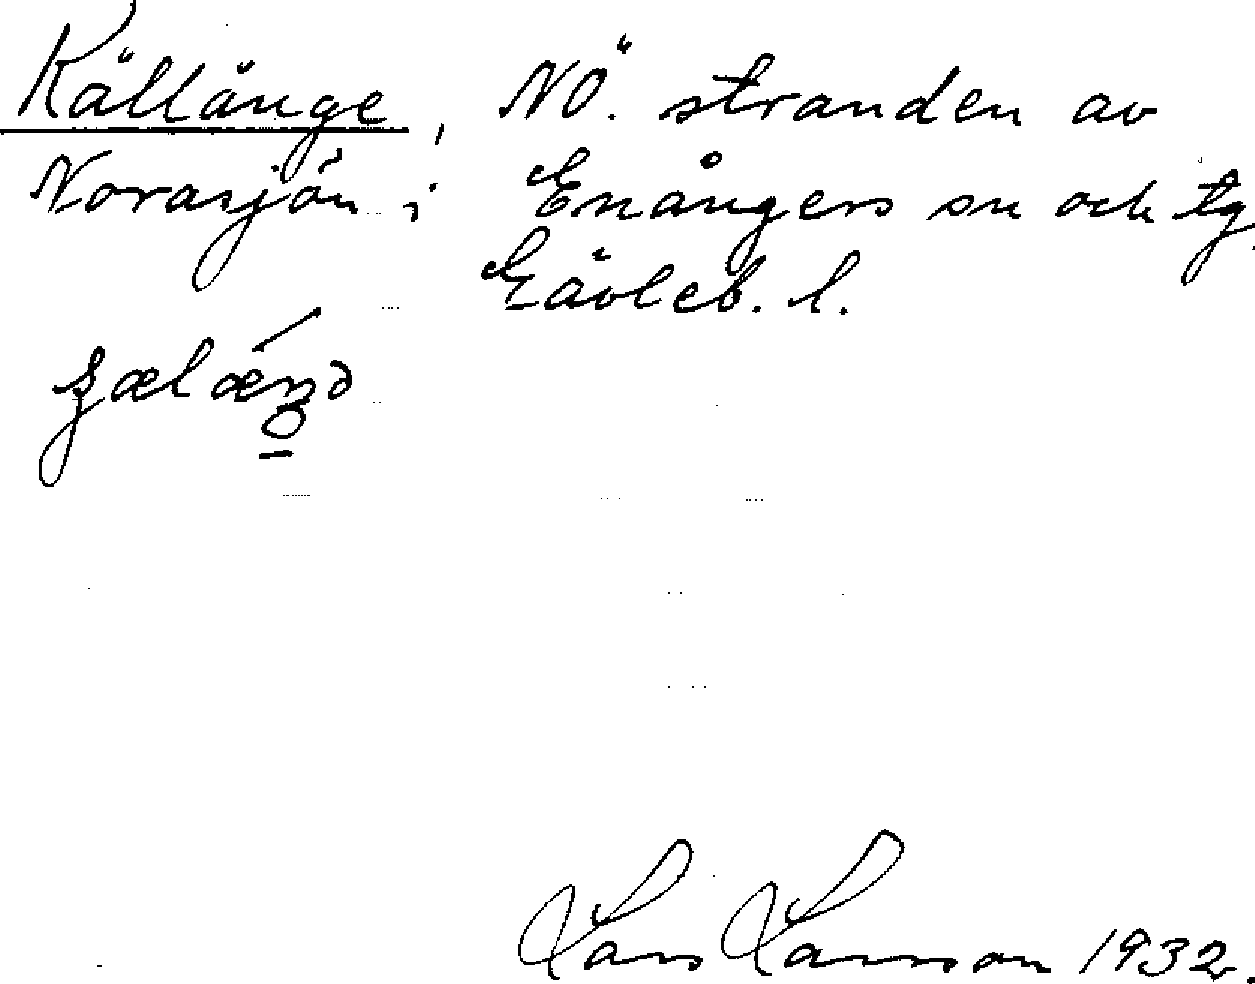 Källänge, NÖ. stranden av
Norasjön i Enångers sn och tg,
Gävleb. l.
Lars Larsson 1932.